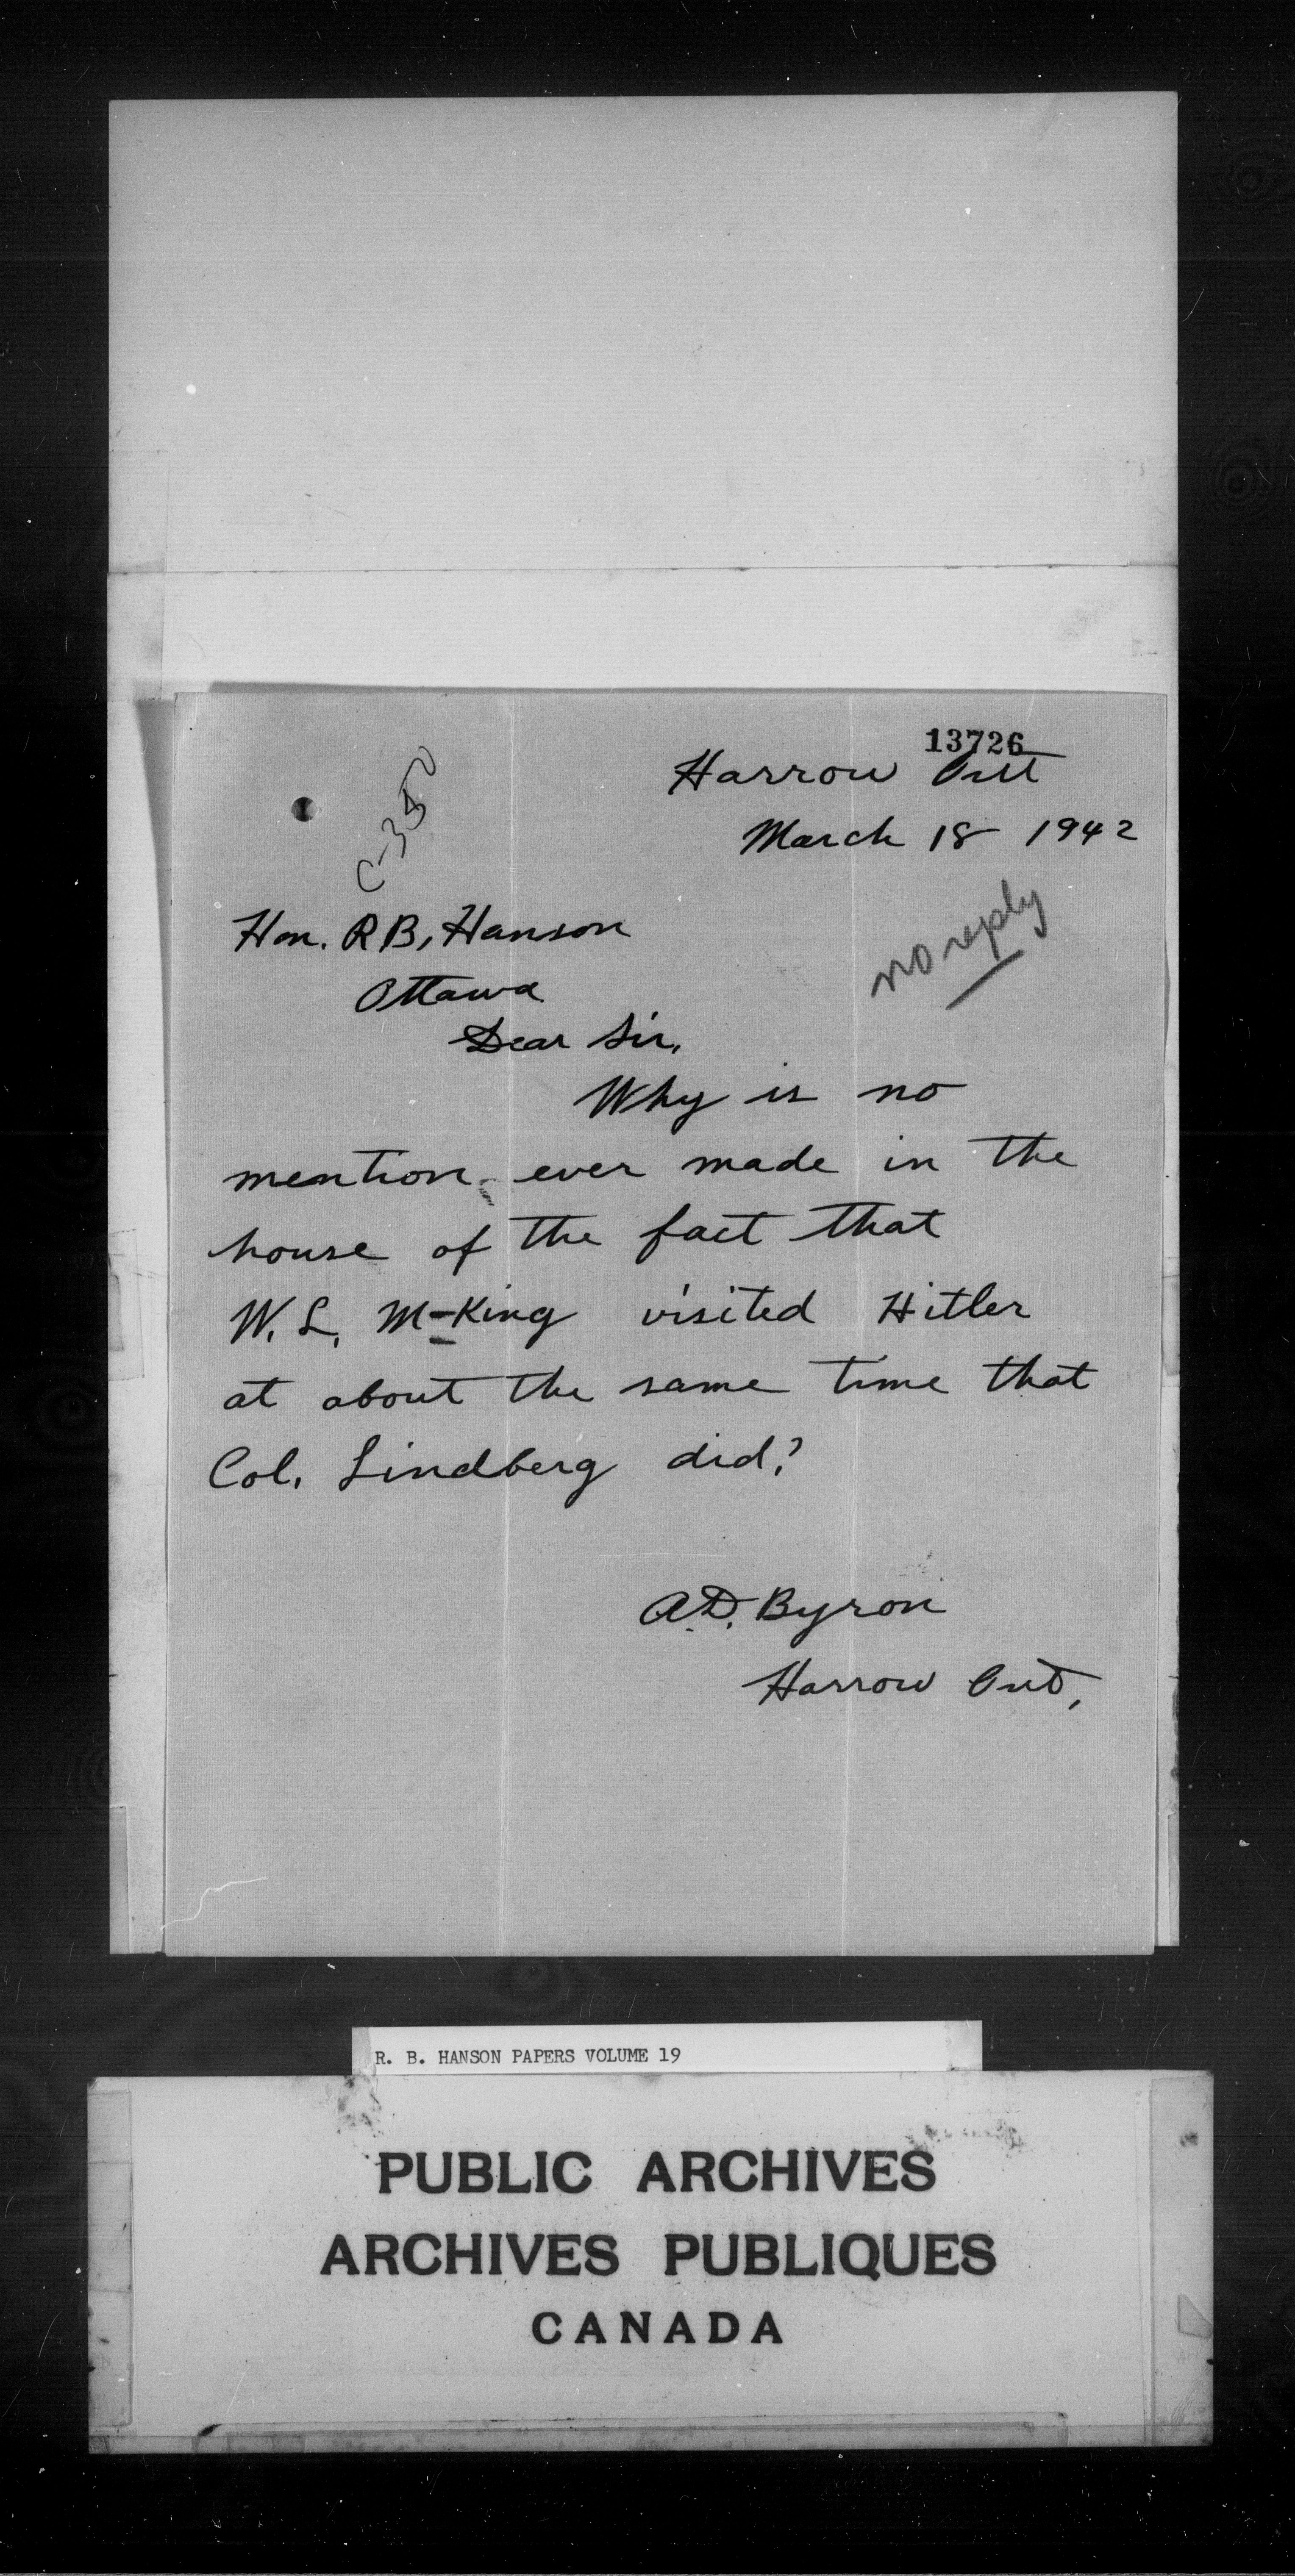 13726
Harrow Ont
March 18 1942
C-350
no reply
Hon. R B. Hanson
Ottawa
Dear Sir,
Why is no
mention ever made in the
house of the fact that
W. L. M-King visited Hitler
at about the same time that
Col. Lindberg did?
A.D. Byron
Harrow Ont,
R. B. HANSON PAPERS VOLUME 19
PUBLIC ARCHIVES
ARCHIVES PUBLIQUES
CANADA